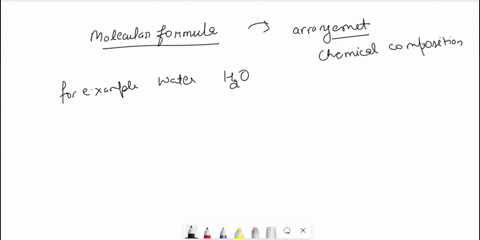 Molecular formula → arrangemet
chemical composition
for e.xample water H₂O